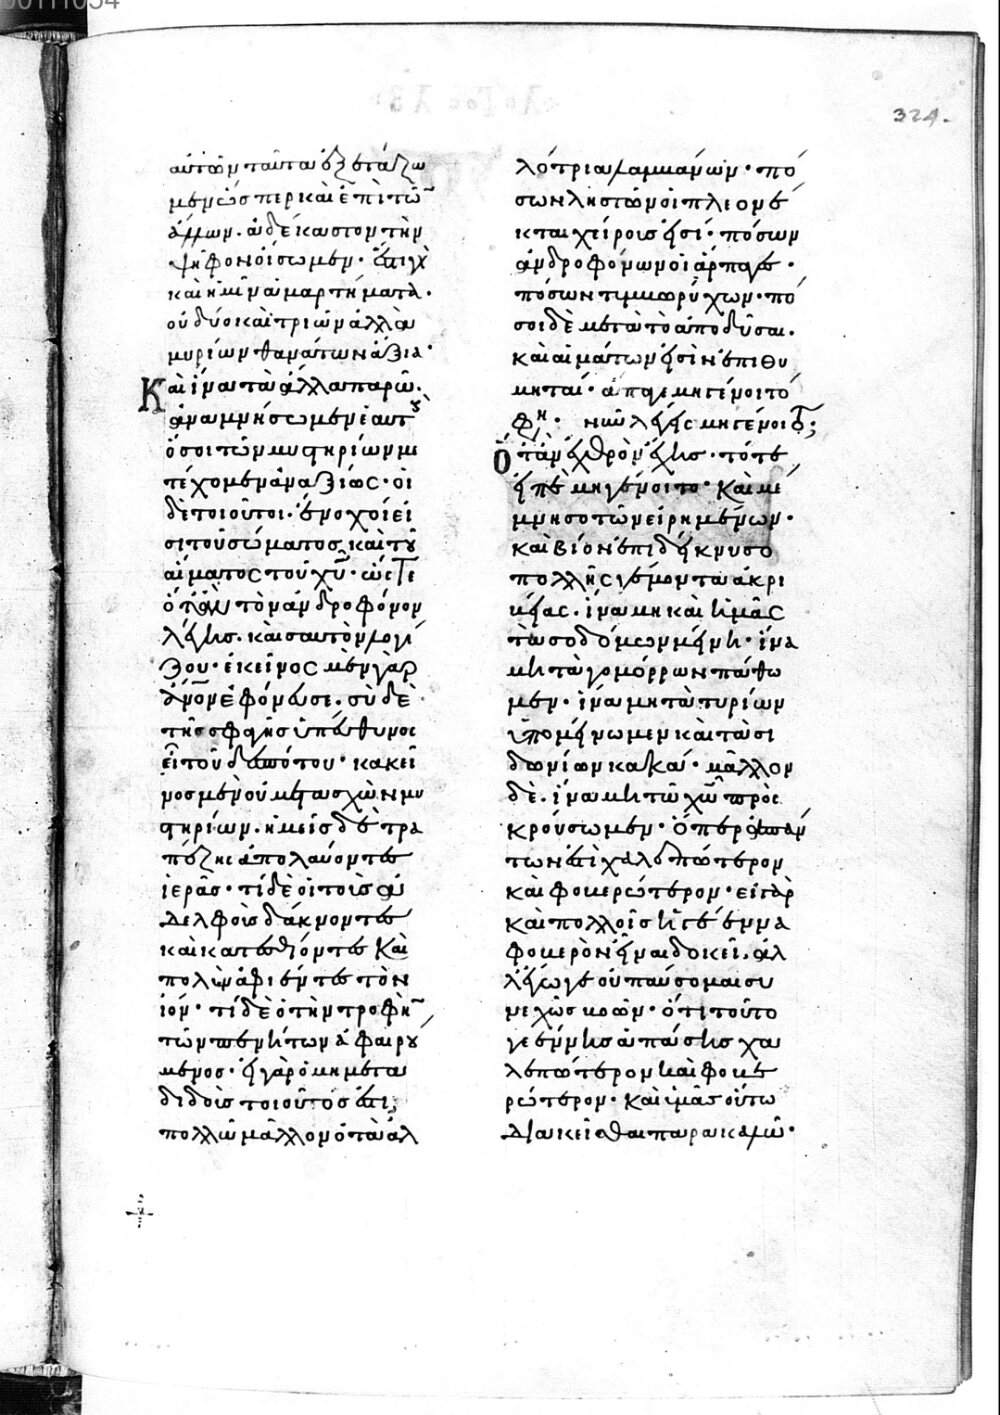 324.
αὐτῶν ταῦτα ἐξετάζω
μεν ὥσπερ καὶ ἐπὶ τῶν
ἄλλων. ἂν δὲ καυστον τὴν
ψῆφον οἴσωμεν· ἔστι γὰρ
καὶ ἡμῖν ἁμαρτήματα·
οὐ δύο καὶ τριῶν ἀλλὰ
μυρίων θανάτων ἄξια·
Καὶ ἵνα τὰ ἄλλα παρῶ.
ἀναμνήσωμεν ἑαυτοὺς
ὅσοι τῶν μυστηρίων με
τέχομεν ἀναξίως· οἱ
δὲ τοιοῦτοι. ἔνοχοί εἰ
σι τοῦ σώματος καὶ τοῦ
αἵματος τοῦ χῦ· ὥστε
ὅταν τὸν ἀνδροφόνον
λέγῃς. καὶ σαυτὸν λογί
ζου· ἐκεῖνος μὲν γὰρ
ἄνον ἐφόνευσε. σὺ δὲ
τῆς σφαγῆς ὑπεύθυνος
εἶ τοῦ δεσπότου· κακεῖ
νος μὲν οὐ μετασχὼν μυ
στηρίων. ἡμεῖς δὲ τρα
πέζης ἀπολαύοντες
ἱερᾶς· τί δὲ οἱ τοὺς ἀ
δελφοὺς δάκνοντες
καὶ κατεσθίοντες καὶ
πολὺν ἀφιέντες τὸν
ἰόν· τί δὲ ὁ τὴν τροφὴν
τῶν πενήτων ἀφαιρού
μενος· εἰ γὰρ ὁ μὴ μετα
διδοὺς τοιοῦτός ἐστι;
πολλῶ μᾶλλον ὁ τὰ ἀλ
λότρια λαμβάνων· πό
σων ληστῶν οἱ πλεονέ
κται χείρους εἰσί· πόσων
ἀνδροφόνων οἱ ἅρπαγες·
πόσων τυμβωρύχων· πό
σοι δὲ μετὰ τὸ ἀποδῦσαι.
καὶ αἱμάτων εἰσὶν ἐπιθυ
μηταί· ἄπαγε μὴ γένοιτό
φη· νῦν λέγεις μὴ γένοιτο;
Ὅταν ἐχθρὸν ἔχῃς. τότε
εἰπὲ μὴ γένοιτο· καὶ μέ
μνησο τῶν εἰρημένων·
καὶ βίον ἐπιδείκνυσο
πολλῆς γέμοντα ἀκρι
βείας. ἵνα μὴ καὶ ἡμᾶς
τὰ σοδόμων μένῃ· ἵνα
μὴ τὰ γομόρρων πάθω
μεν· ἵνα μὴ τὰ τυρίων
ὑπομείνωμεν καὶ τὰ σι
δωνίων κακά· μᾶλλον
δὲ. ἵνα μὴ τῶ χῶ προσ
κρούσωμεν· ὅπερ πάν
των ἐστὶ χαλεπώτερον
καὶ φοβερώτερον· εἰ γὰρ
καὶ πολλοῖς ἡ γέεννα
φοβερὸν εἶναι δοκεῖ. ἀλ
λ' ἔγωγε οὐ παύσομαι συ
νεχῶς βοῶν· ὅτι τοῦτο
γεέννης ἁπάσης χα
λεπώτερον καὶ φοβε
ρώτερον· καὶ ὑμᾶς οὕτω
διακεῖσθαι παρακαλῶ·